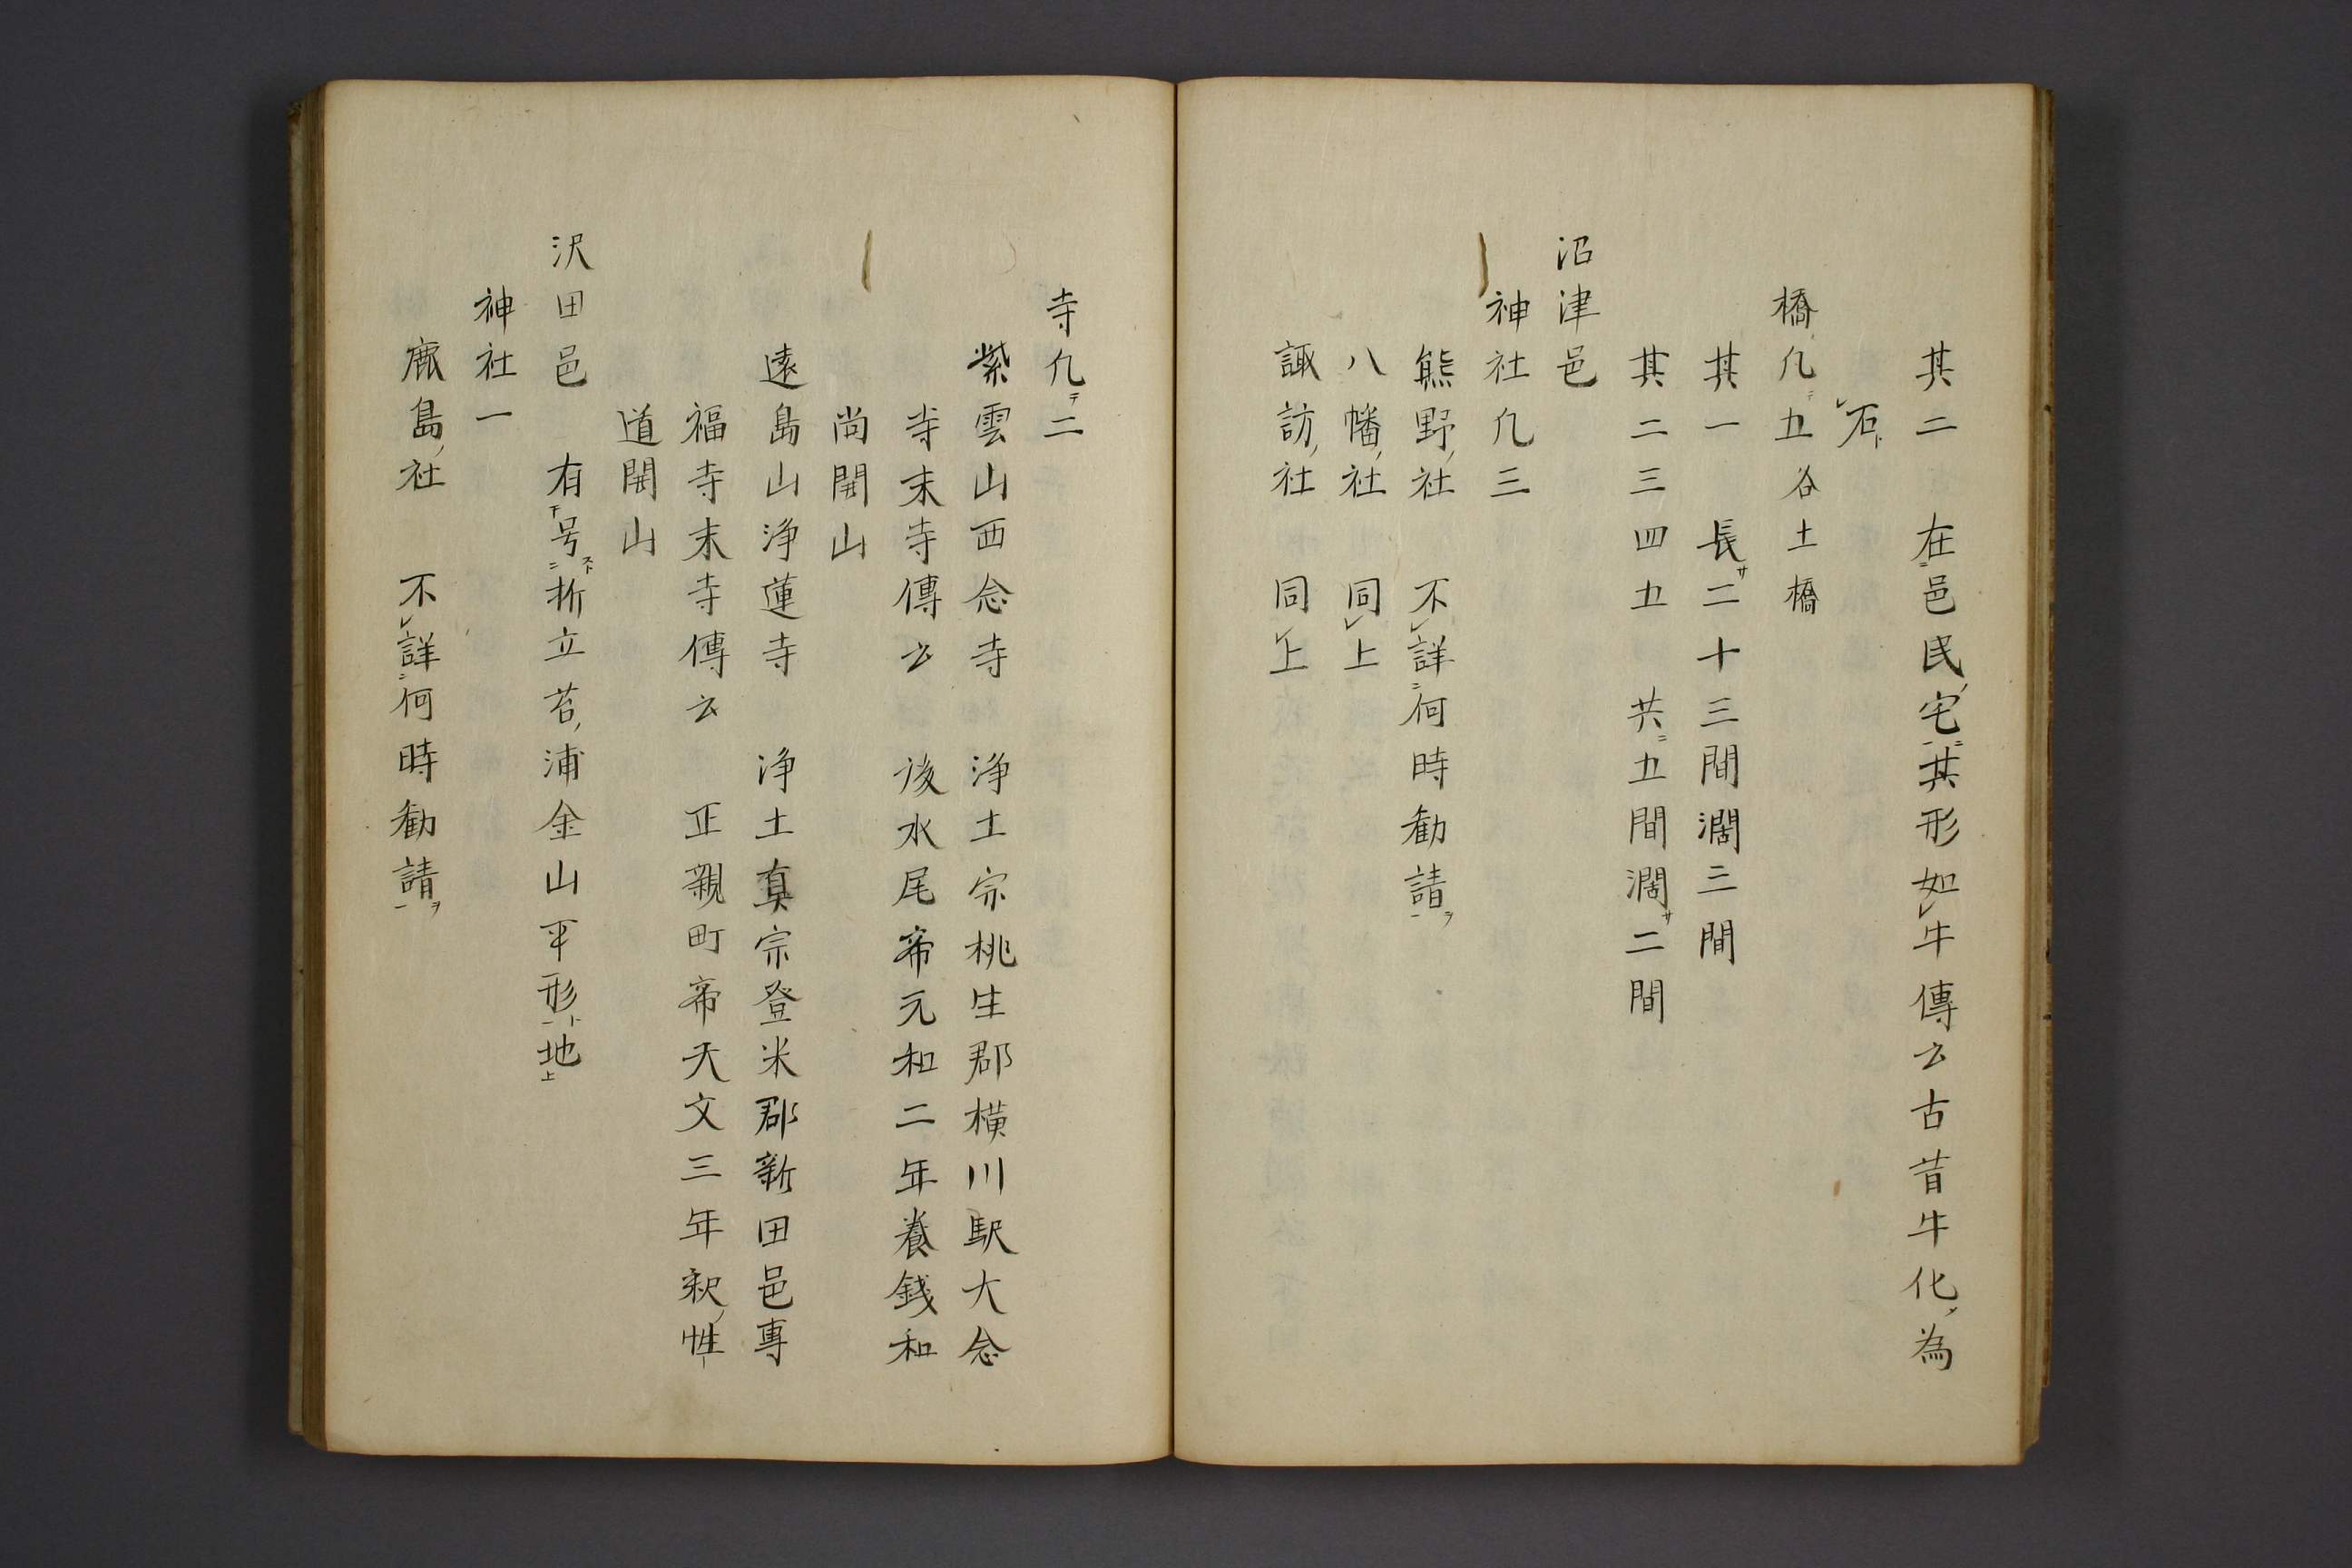 其二　在邑民宅其形如牛傳云古昔牛化為
石
橋凡五 谷土橋
其一　長二十三間濶三間
其二三四五　共五間濶二間
沼津邑
神社凡三
熊野社　不詳何時勧請
八幡社　同上
諏訪社　同上
寺凡二
紫雲山西念寺　浄土宗桃生郡横川駅大念
寺末寺傳云　後水尾帝元和二年養銭和
尚開山
遠島山浄蓮寺　浄土真宗登米郡新田邑專
福寺末寺傳云　正親町帝天文三年釈性
道開山
沢田邑　有号折立苔浦金山平形地
神社一
鹿島社　不詳何時勧請